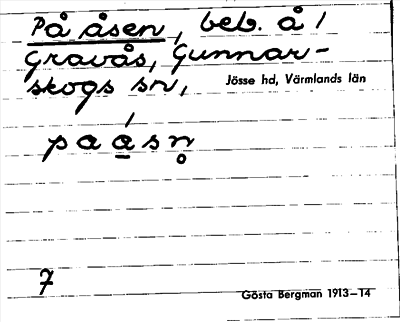 På åsen, beb. å /
Gravås, Gunnar-
skogs sn,
Jösse hd, Värmlands län
pa á̲sn̥
7
Gösta Bergman 1913–14